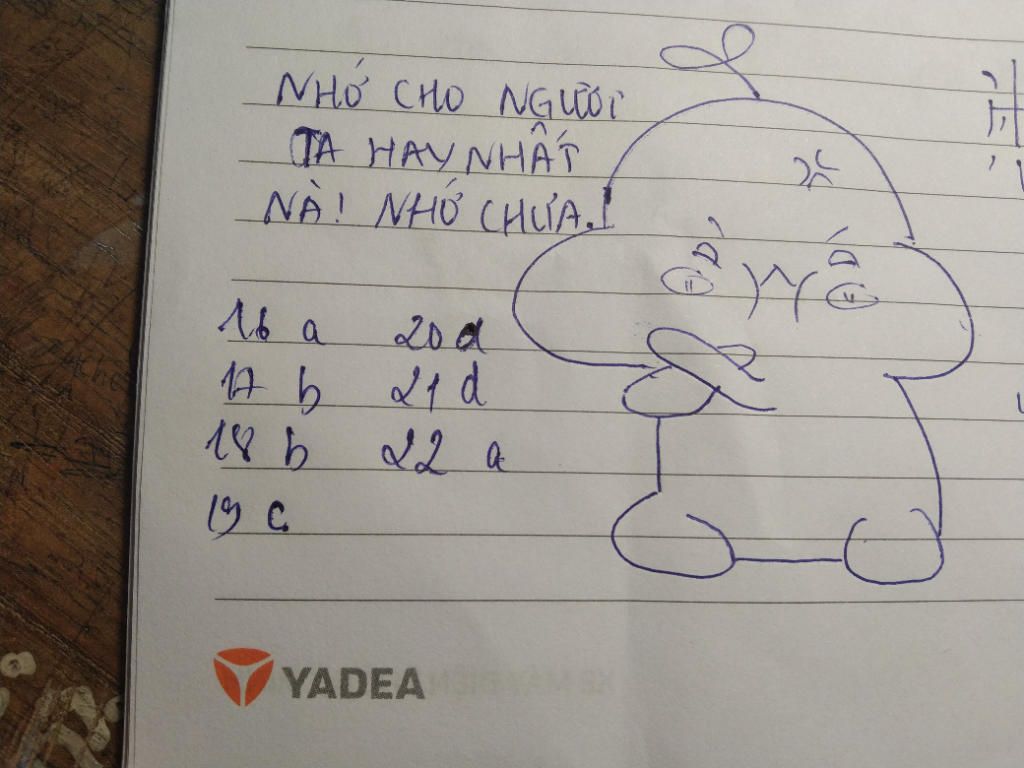 NHỚ CHO NGƯƠI
TA HAY NHẤT
NÀ! NHỚ CHƯA.!
16 a 20 d
17 b 21 d
18 b 22 a
19 c
YADEA